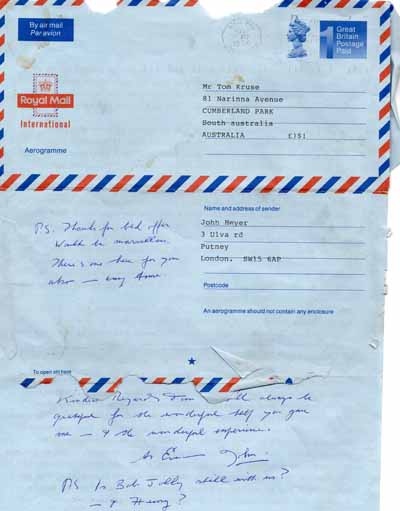 By air mail
Par avion
1 Great
Britain
Postage
Paid
Royal Mail
International
Aerogramme
Mr Tom Kruse
81 Narinna Avenue
CUMBERLAND PARK
South australia
AUSTRALIA
Name and address of sender
John Meyer
3 Ulva rd
Putney
London. SW15 6AP
Postcode
An aerogramme should not contain any enclosure
P.S. Thanks for bed offer
Would be marvellous.
There's one here for you
also — any time.
To open slit here
Kindest Regards Tom will always be
grateful for the wonderful help you gave
me — & the wonderful experience.
As Ever John.
PS Is Bob Jolly still with us?
— & Henry?